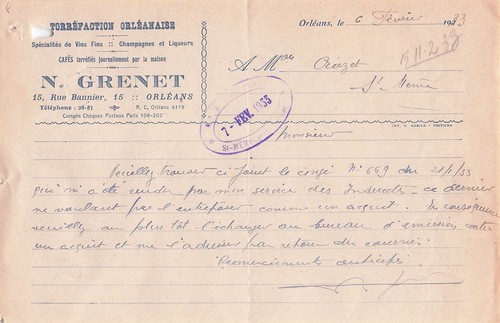 TORRÉFACTION ORLÉANAISE
Spécialités de Vins Fins :: Champagnes et Liqueurs
CAFÉS torréfiés journellement par la maison
N. GRENET
15, Rue Bannier, 15 :: ORLÉANS
Téléphone : 28-87 R. C. Orléans 4119
Compte Chèques Postaux Paris 104-207
Orléans, le 6 Février 1933
R 11-2-33
A Mr
St Mesme
7 - FEV. 1933
ST-MESME
Monsieur
Veuillez trouver ci joint le congé N° 669 du 21/1/33
qui m'a été rendu par mon service des Indirects - ce dernier
ne voulant pas l'entreposer comme un acquit. En conséquence
veuillez au plus tôt l'échanger au bureau d'émission contre
un acquit et me l'adresser par retour du courrier.
Remerciements anticipés.